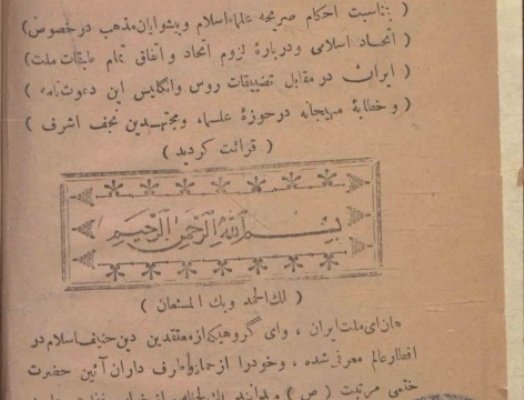 ( بمناسبت احکام صریحه علماء اسلام و پیشوایان مذهب در خصوص )
( اتحاد اسلامی ودربارهٔ لزوم اتحاد و اتفاق تمام طبقات ملت )
( ایران در مقابل تضییقات روس وانگلیس این دعوت نامه )
( و خطابهٔ مهیجانه در حوزهٔ علماء ومجتهدین نجف اشرف )
( قرائت کردید )
بسم الله الرحمن الرحیم
( لك الحمد وبك المستعان )
هان ای ملت ایران ، وای گروهیکه از معتقدین دین حنیف اسلام در
اقطار عالم معرفی شده ، وخودرا از حماة وطرف داران آئین حضرت
ختمی مرتبت ( ص )